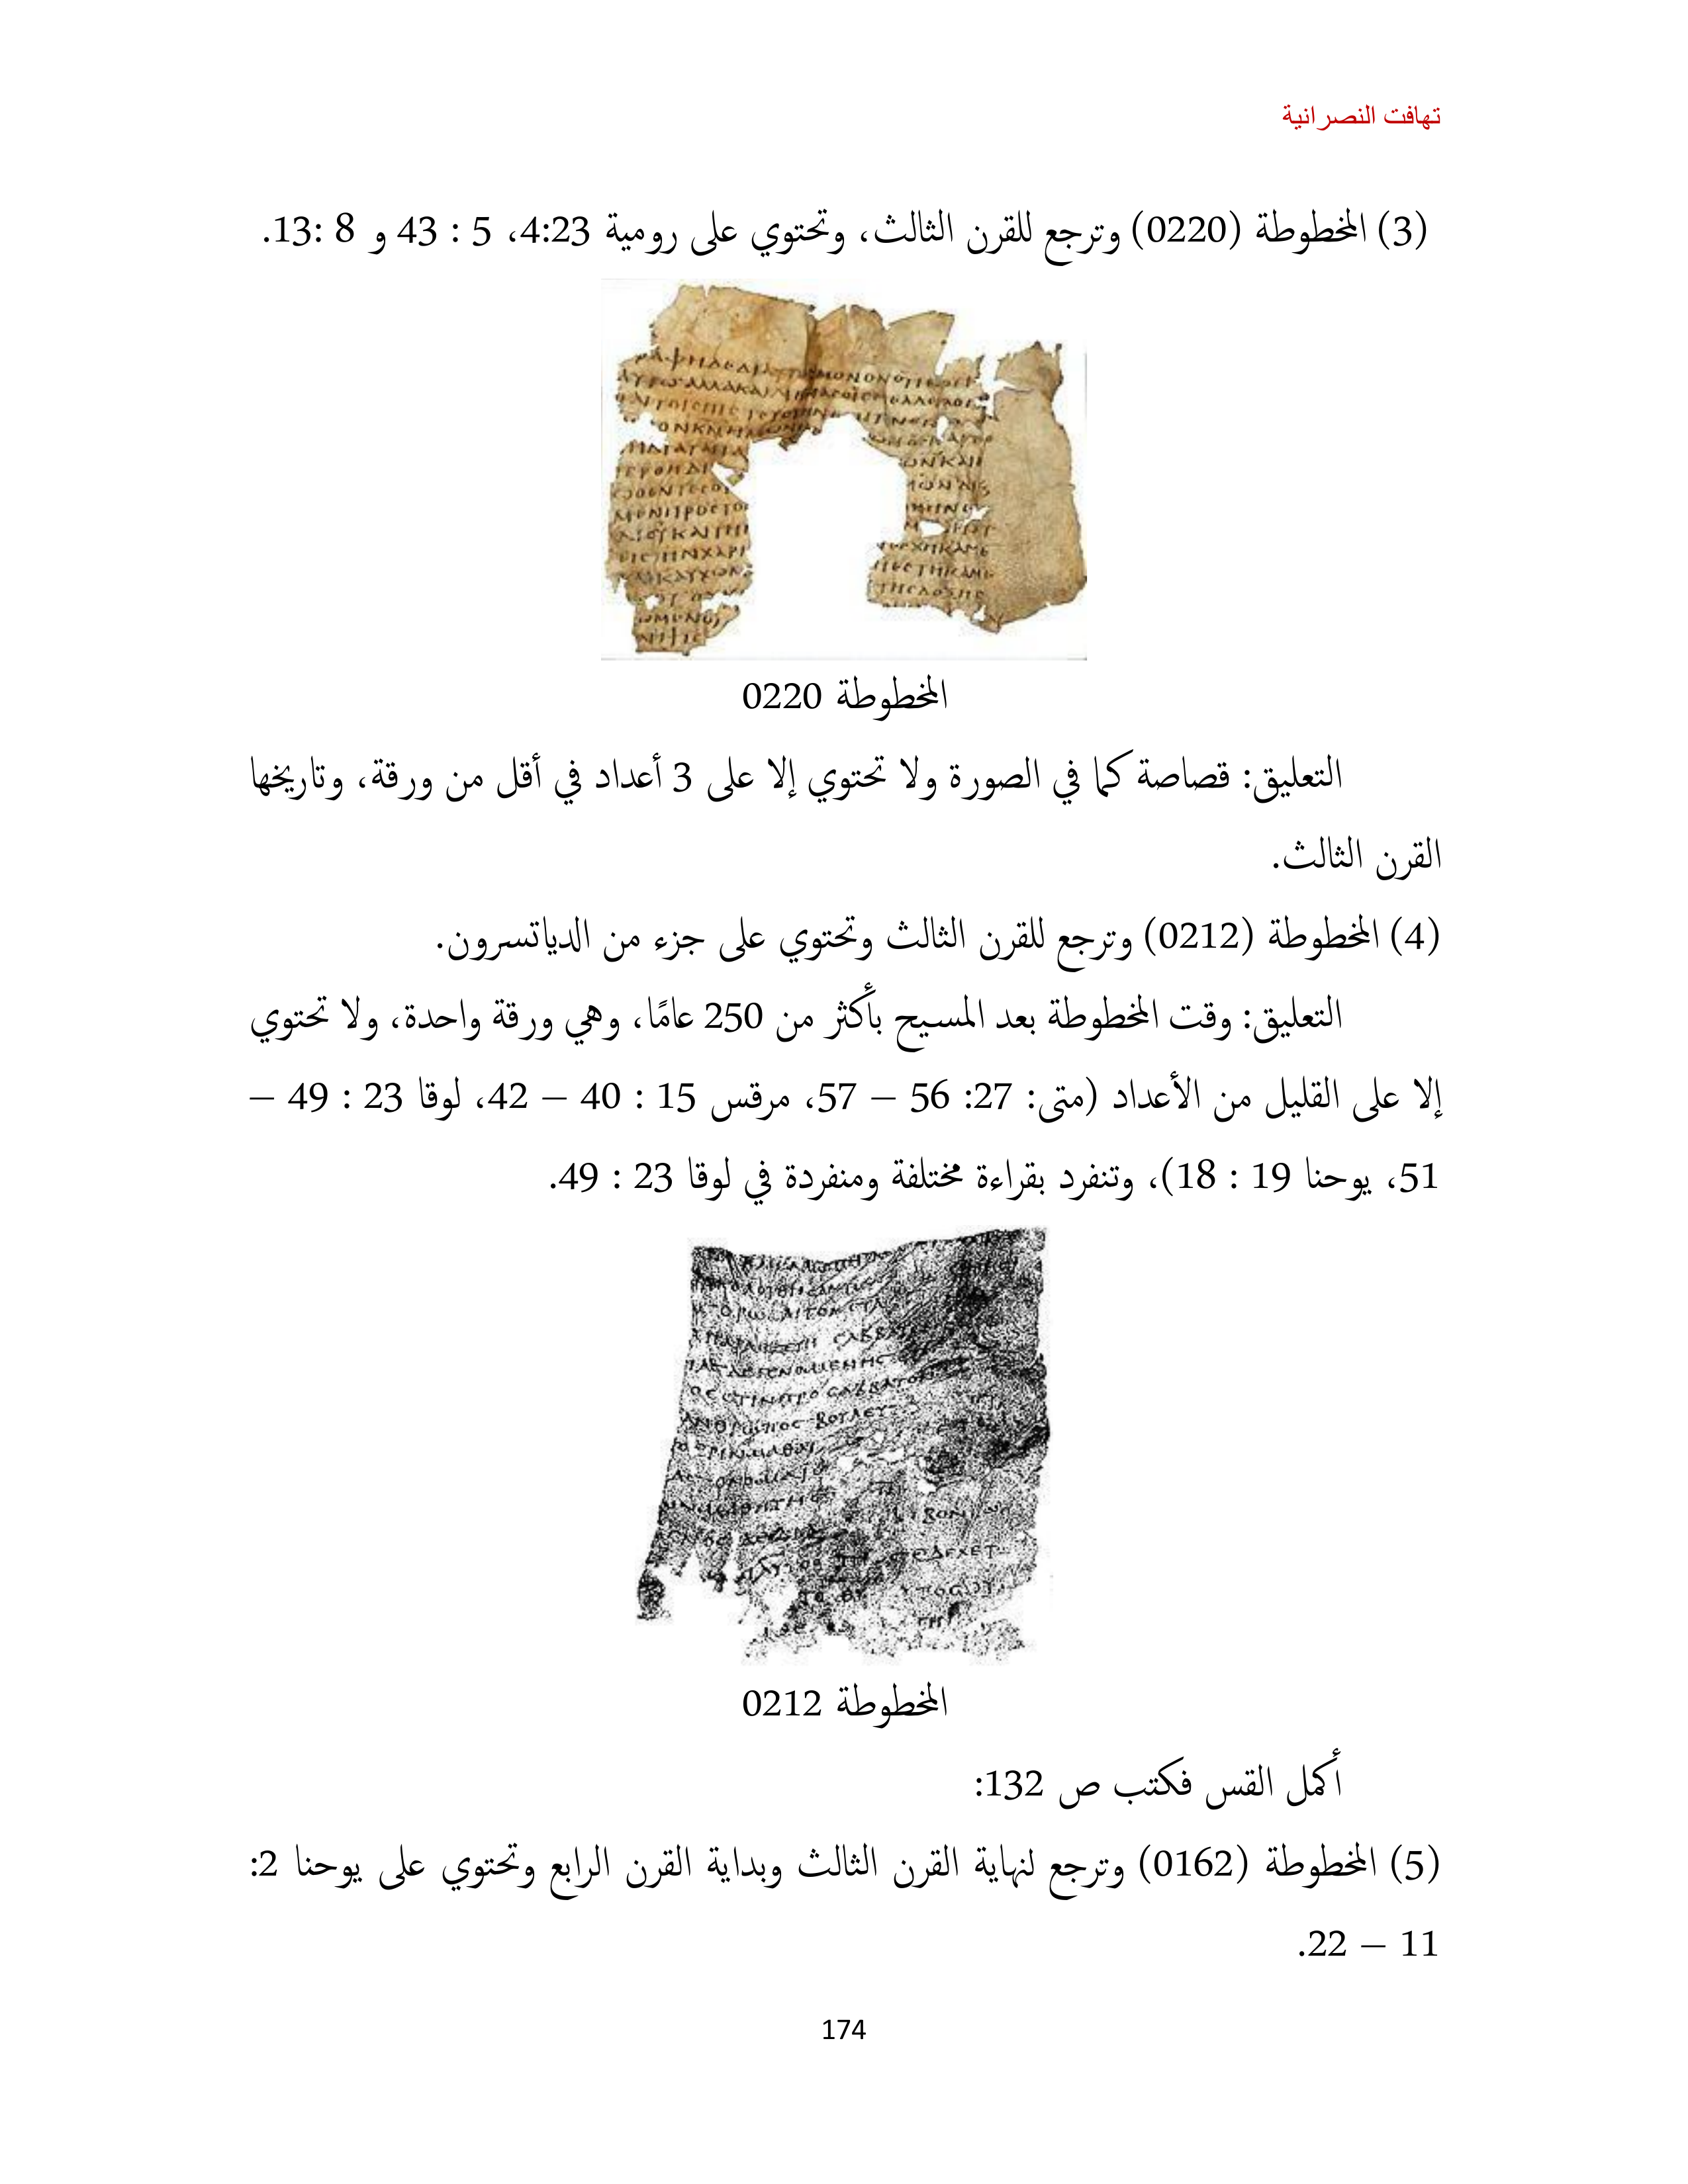 تهافت النصرانية
(3) المخطوطة (0220) وترجع للقرن الثالث، وتحتوي على رومية 4:23، 5 : 43 و 8 :13.
المخطوطة 0220
التعليق: قصاصة كما في الصورة ولا تحتوي إلا على 3 أعداد في أقل من ورقة، وتاريخها
القرن الثالث.
(4) المخطوطة (0212) وترجع للقرن الثالث وتحتوي على جزء من الدياتسرون.
التعليق: وقت المخطوطة بعد المسيح بأكثر من 250 عامًا، وهي ورقة واحدة، ولا تحتوي
إلا على القليل من الأعداد (متى: 27: 56 – 57، مرقس 15 : 40 – 42، لوقا 23 : 49 –
51، يوحنا 19 : 18)، وتنفرد بقراءة مختلفة ومنفردة في لوقا 23 : 49.
المخطوطة 0212
أكمل القس فكتب ص 132:
(5) المخطوطة (0162) وترجع لنهاية القرن الثالث وبداية القرن الرابع وتحتوي على يوحنا 2:
11 – 22.
174